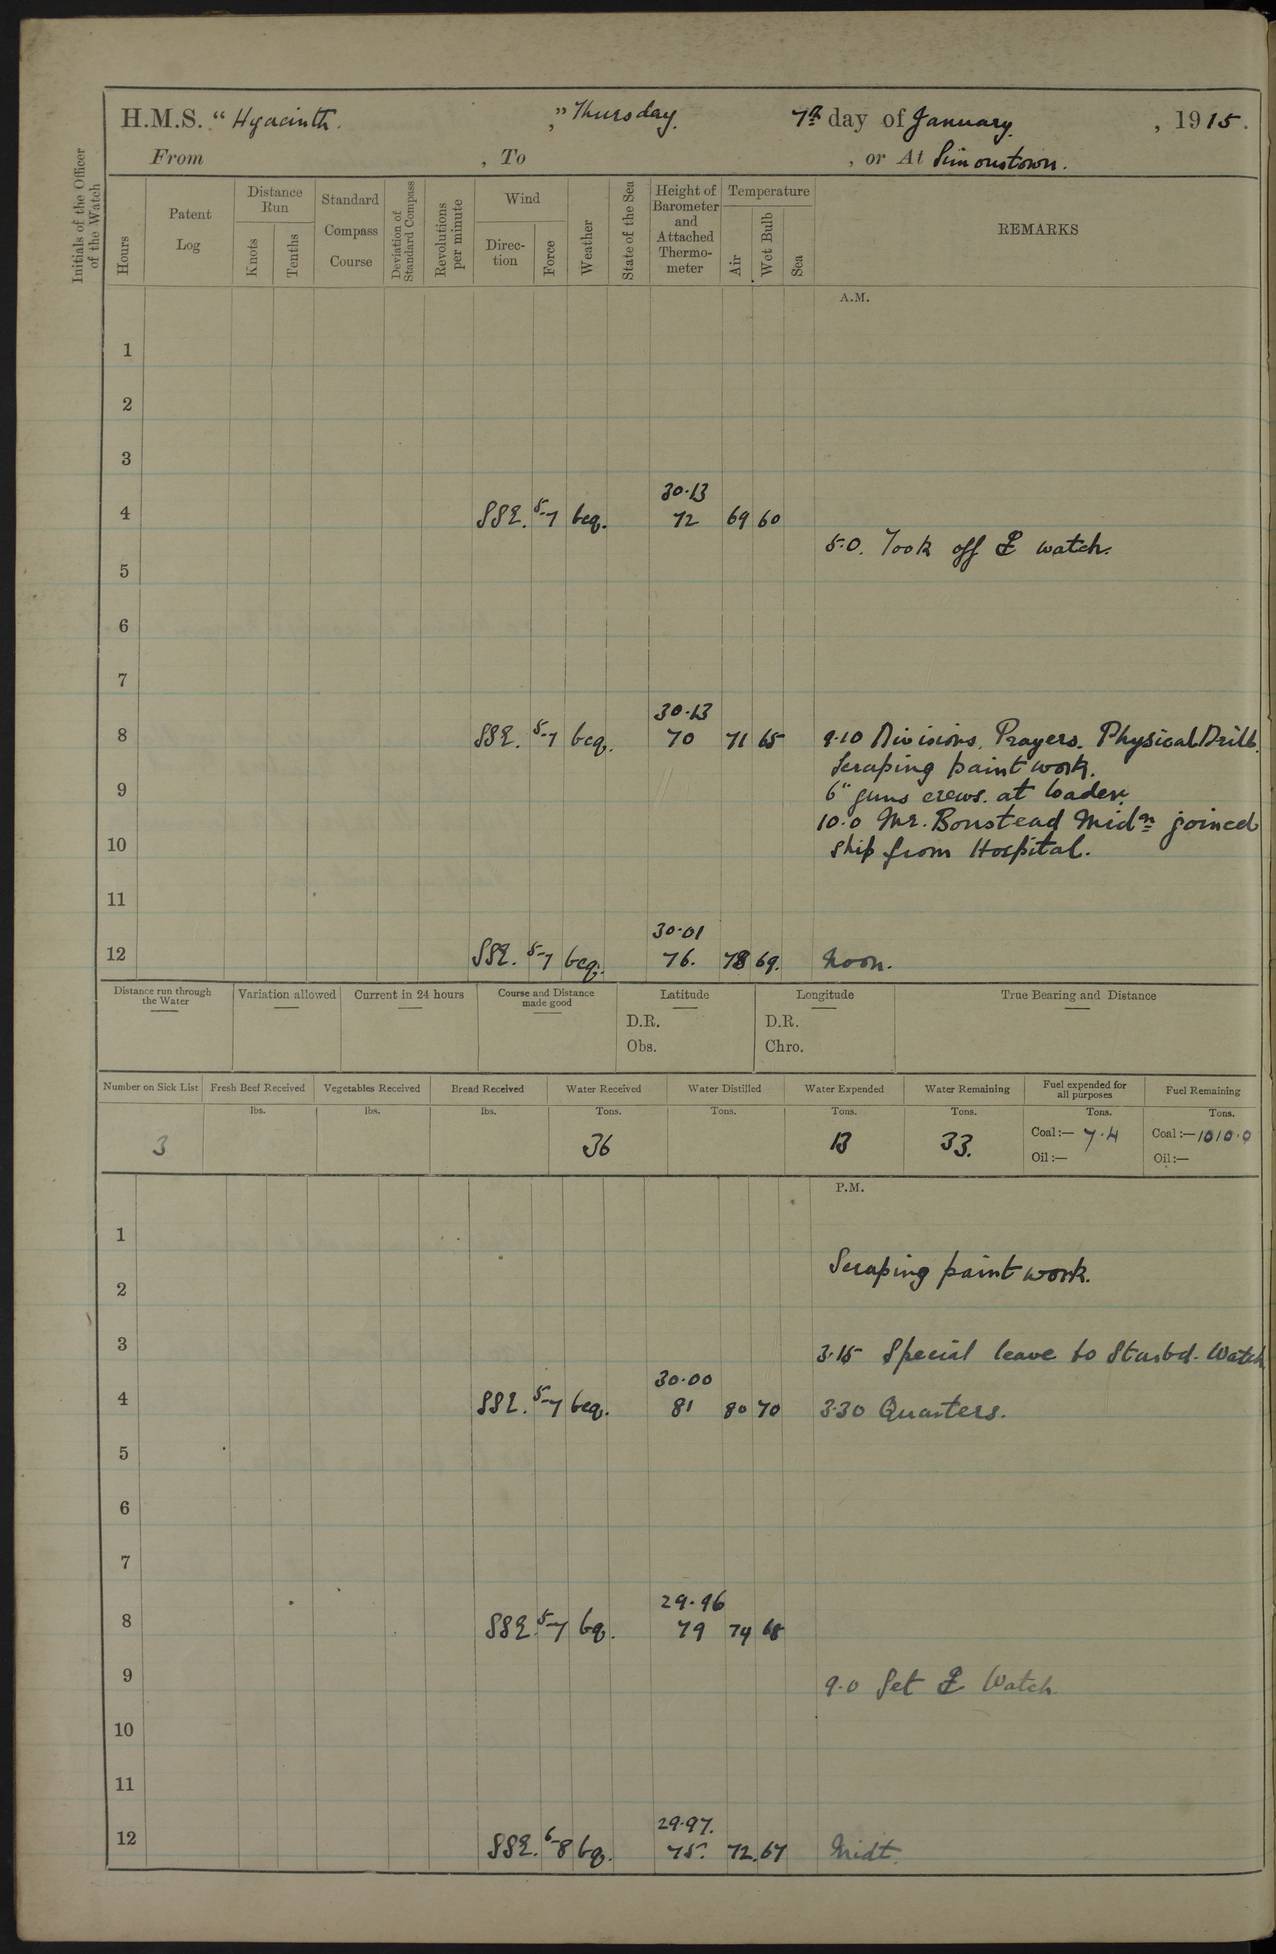 H.M.S. “Hyacinth.„ Thursday. 7th day of January, 1915.
From , To , or At Simonstown.
Initials of the Officer of the Watch
Hours
Patent Log
Distance Run
Knots
Tenths
Standard Compass Course
Deviation of Standard Compass
Revolutions per minute
Wind
Direction
Force
Weather
State of the Sea
Height of Barometer and Attached Thermometer
Temperature
Air
Wet Bulb
Sea
REMARKS
A.M.
1
2
3
30.13
4 SSE. 5-7 bcq. 72 69 60
5.0. Took off watch.
5
6
7
30.13
8 SSE. 5-7 bcq. 70 71 65 9.10 Divisions. Prayers. Physical Drill.
Scraping paint work.
9 6" guns crews. at loader.
10.0 Mr. Boustead Midn joined
10 ship from Hospital.
11
30.01
12 SSE. 5-7 bcq. 76. 78 69. Noon.
Distance run through the Water
Variation allowed
Current in 24 hours
Course and Distance made good
Latitude
D.R.
Obs.
Longitude
D.R.
Chro.
True Bearing and Distance
Number on Sick List Fresh Beef Received Vegetables Received Bread Received Water Received Water Distilled Water Expended Water Remaining Fuel expended for all purposes Fuel Remaining
lbs. lbs. lbs. Tons. Tons. Tons. Tons. Tons. Tons.
3 36 13 33. Coal:— 7.4 Coal:—1010.0
Oil:— Oil:—
P.M.
1
Scraping paint work.
2
3 3.15 Special leave to Starbd. Watch
30.00
4 SSE. 5-7 bcq. 81 80 70 3.30 Quarters.
5
6
7
29.96
8 SSE. 5-7 bq. 79 74 68
9 9.0 Set Watch
10
11
29.97.
12 SSE. 6-8 bq. 75. 72. 67 Midt.